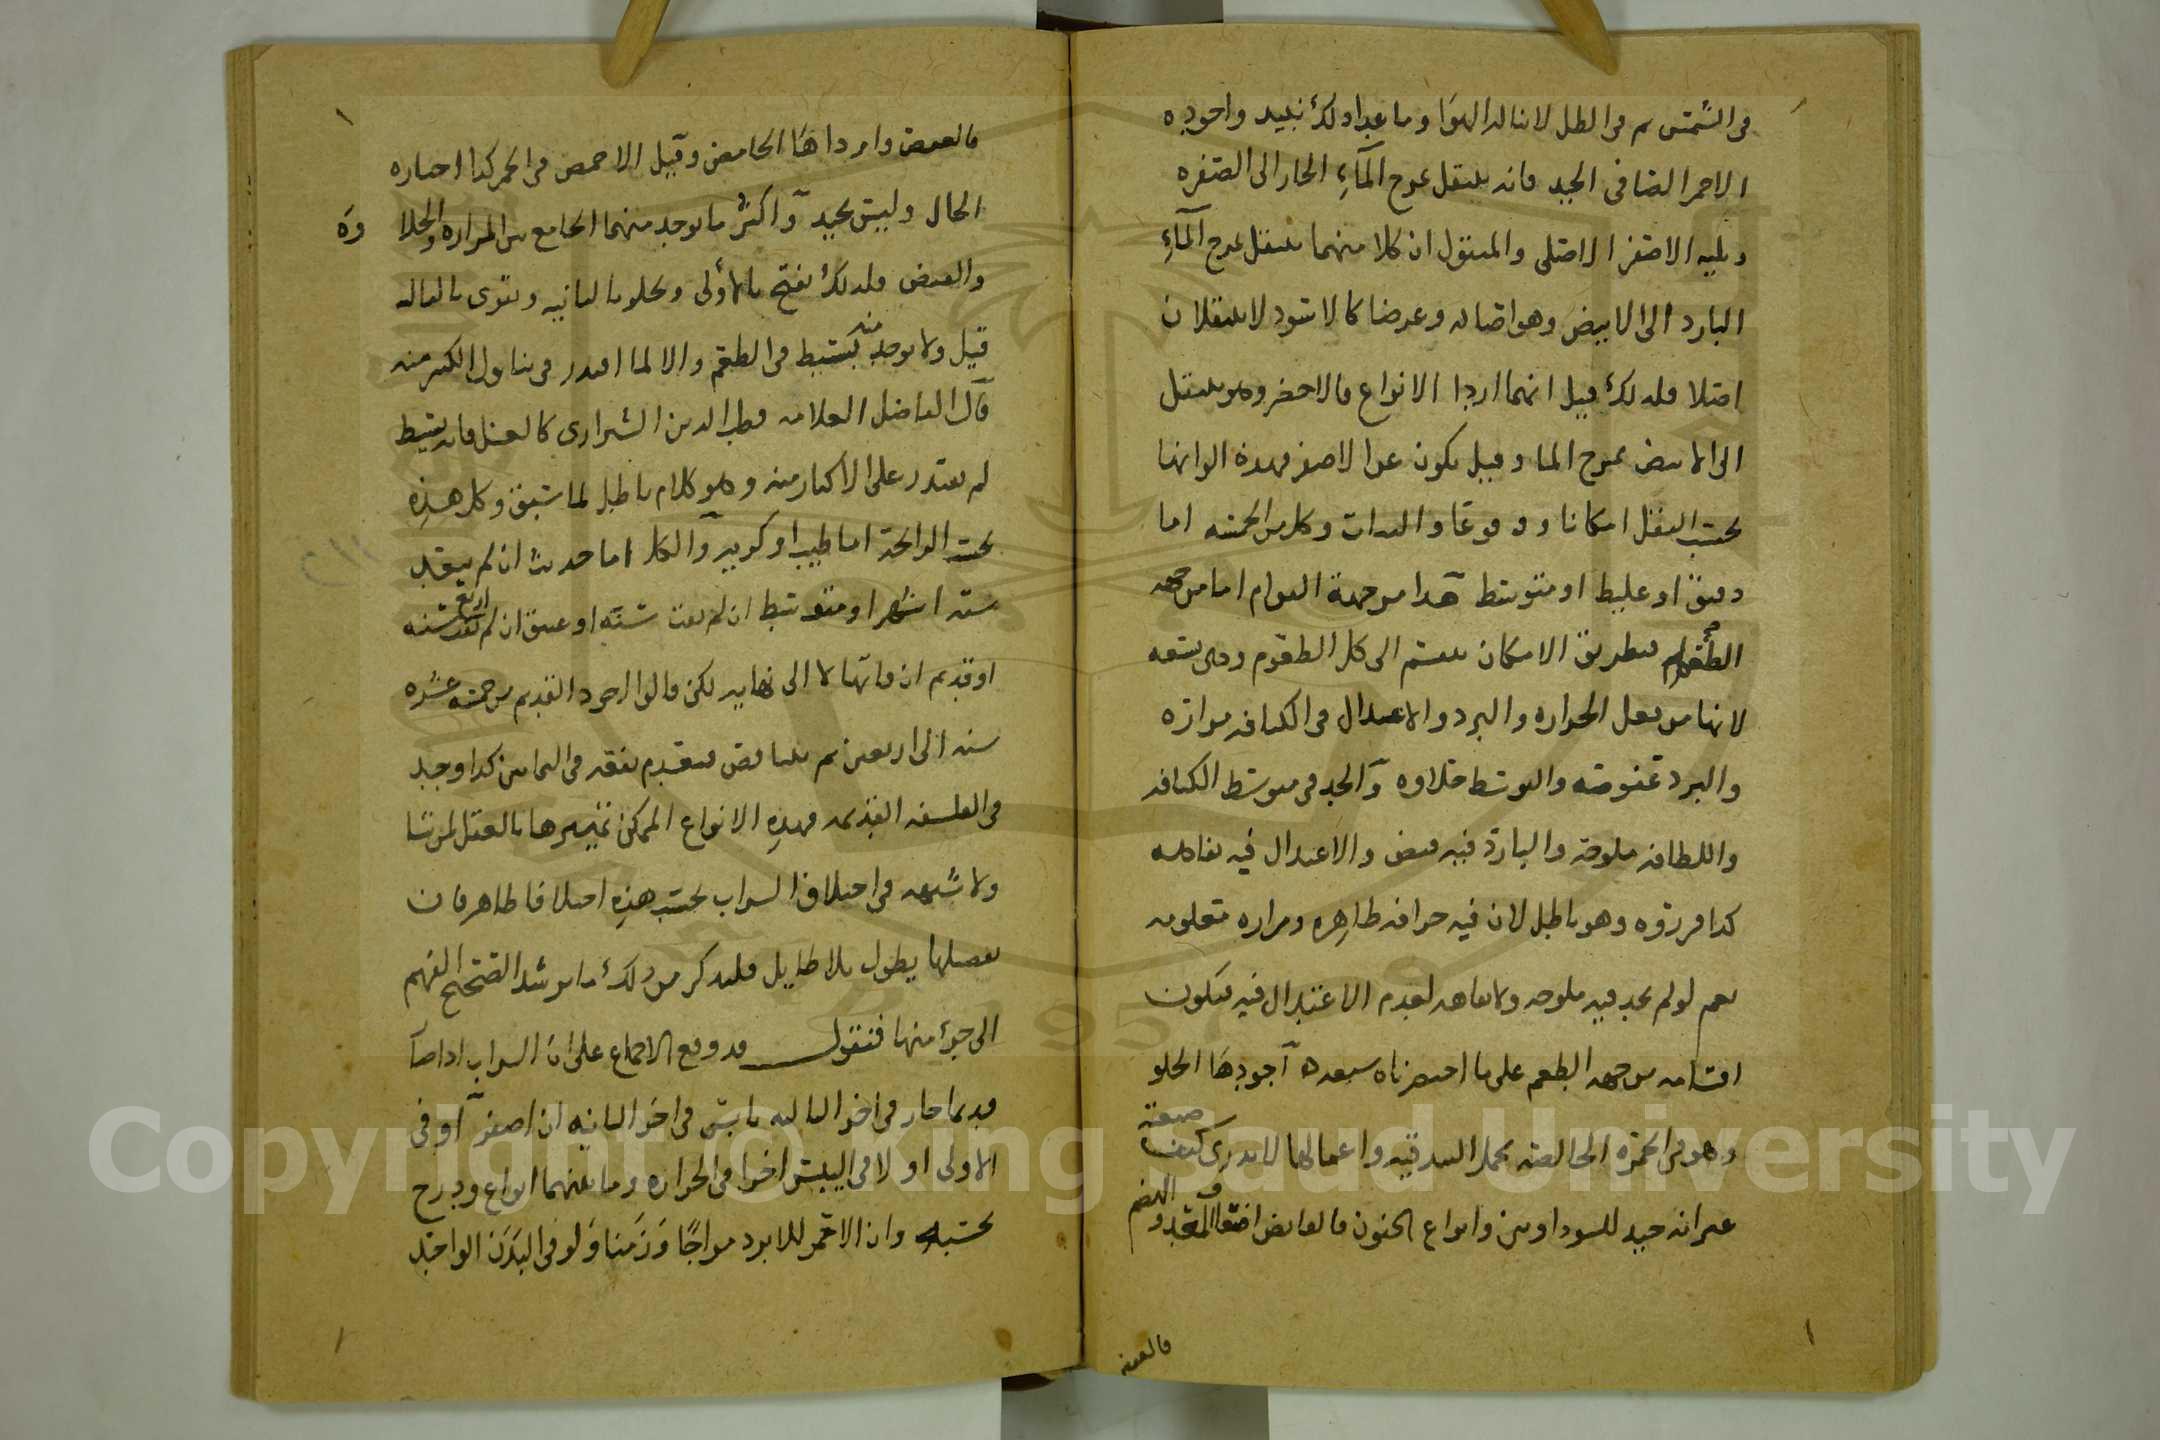 في الشمس ثم في الظل لا ينالها الهوا وما عدا ذلك نبيذ واجوده
الاحمر الصافي الجيد فانه ينتقل بمزج المآءِ الحار الى الصفره
ويليه الاصفر الاصلي والمنقول ان كلا منهما ينتقل بمزج المآءِ
البارد الى الابيض وهو اصاله وعرضا كالاسود لا ينتقلان
اصلا فلذلك قيل انهما اردا الانواع فالاخضر وهو ينتقل
الى الابيض بمزج الما وقيل يكون عن الاصفر فهذه الوانها
بحسب النقل امكانا ووقوعا والذات وكل من الخمسه اما
دقيق او غليظ او متوسط هذا من جهة القوام اما من جهه
الطعوم فبطريق الامكان ينقسم الى كل الطعوم وهي تسعه
لانها من فعل الحراره والبرد والاعتدال في الكثافه مراره
والبرد عفوصه والتوسط حلاوه والحد في متوسط الكثافه
واللطافه ملوحه والبارد فيه قبض والاعتدال فيه تفاهه
كذا قرروه وهو باطل لان فيه حرافه ظاهره ومراره معلومه
نعم لو لم نجد فيه ملوحه ولا تفاهه لعدم الاعتدال فيه فتكون
اقسامه من جهه الطعم على ما اخترناه سبعه آجودها الحلو
وهو في الحمره الخالصه يحمل البندقيه واعمالها لا ندري كيف صفته
غير انه جيد للسوداويين وانواع الجنون فالقابض لضعف المعده والهضم
فالعفص
فالعفص وارداها الحامض وقيل الاحمض في الخمر كذا اختاره
الحال وليس بجيد وآكثر ما يوجد منهما الجامع بين المراره والحلاوه
والقبض فلذلك يفتح بالاولى ويجلو بالثانيه ويقوى بالثالثه
قيل ولا يوجد منه بسيط في الطعم والا لما اقتدر في تناول الكثير منه
قال الفاضل العلامه قطب الدين الشيرازي كالعسل فانه بسيط
لم يقتدر على الاكثار منه وهو كلام باطل لما سبق وكل هذه
بحسب الرائحة اما طيب او كريه والكل اما حديث ان لم يتعد
سته اشهر او متوسط ان لم يفت سنه او عتيق ان لم يفت اربع سنه
او قديم ان فاتها لا الى نهايه لكن قالوا اجود القديم من خمسه عشره
سنه الى اربعين ثم يتناقص فيعدم نفعه في الثمانين كذا وجد
في الفلسفه القديمه فهذه الانواع الممكن تمييزها بالعقل لمن شا
ولا شبهه في اختلاف الشراب بحسب هذه اختلافا ظاهرا فان
تفصيلها يطول بلا طايل فلنذكر من ذلك ما يرشد الصحيح الفهم
الى جزء منها فنقول قد وقع الاجماع على ان الشراب اذا صار
قديما حار في اخر الثالثه يابس في اخر الثانيه ان اصفر آو في
الاولى او لا في اليبس اخرا في الحراره وما بينهما انواع ودرج
بحسبه وان الاحمر للابرد مزاجًا وَزَمنا وَلو في البَدَن الواحد